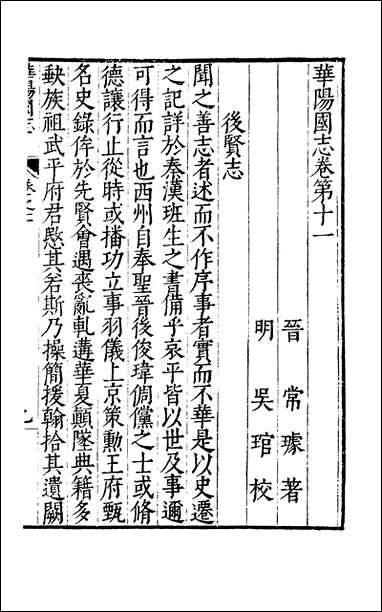 華陽國志卷第十一
晉常璩著
明吳琯校
後賢志
聞之善志者述而不作序事者實而不華是以史遷
之記詳於秦漢班生之書備乎哀平皆以世及事邇
可得而言也西州自奉聖晉後俊瑋倜儻之士或脩
德讓行止從時或播功立事羽儀上京策勲王府甄
名史錄侔於先賢會遇喪亂軋遘華夏顛墜典籍多
缺族祖武平府君愍其若斯乃操簡援翰拾其遺闕
華陽國志